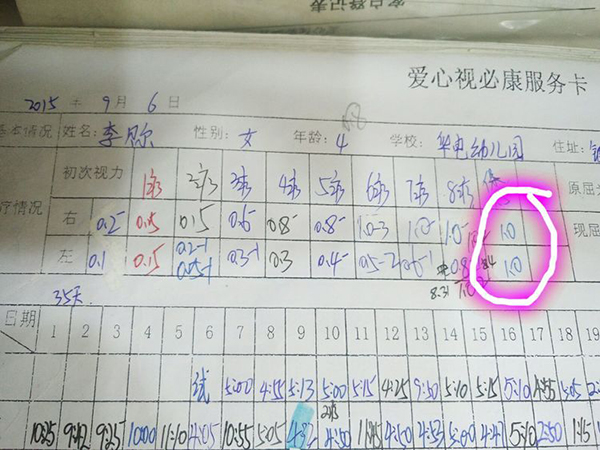 客户登记表
爱心视必康服务卡
2015年 9月 6日
基本情况 姓名: 性别: 女 年龄: 4 学校: 华电幼儿园 住址:
初次视力 1次 2次 3次 4次 5次 6次 7次 8次 原屈光
疗情况 右 0.2- 0.5 0.15 0.6- 0.8- 0.8- 1.0-3 1.0- 1.0- 1.0 现屈
左 0.1 0.15 0.2-1 0.3-1 0.3 0.4- 0.5-2 0.6-1 0.8 1.0
35天
日期 1 2 3 4 5 6 7 8 9 10 11 12 13 14 15 16 17 18 19
试 5:00 4:55 5:13 5:00 5:15 4:25 9:50 5:10 5:15 5:10 4:55 5:05
10:25 9:42 9:25 10:00 11:10 4:05 10:55 5:05 4:32 4:50 11:45 4:50 4:53 5:00 4:47 5:10 2:50 1:45